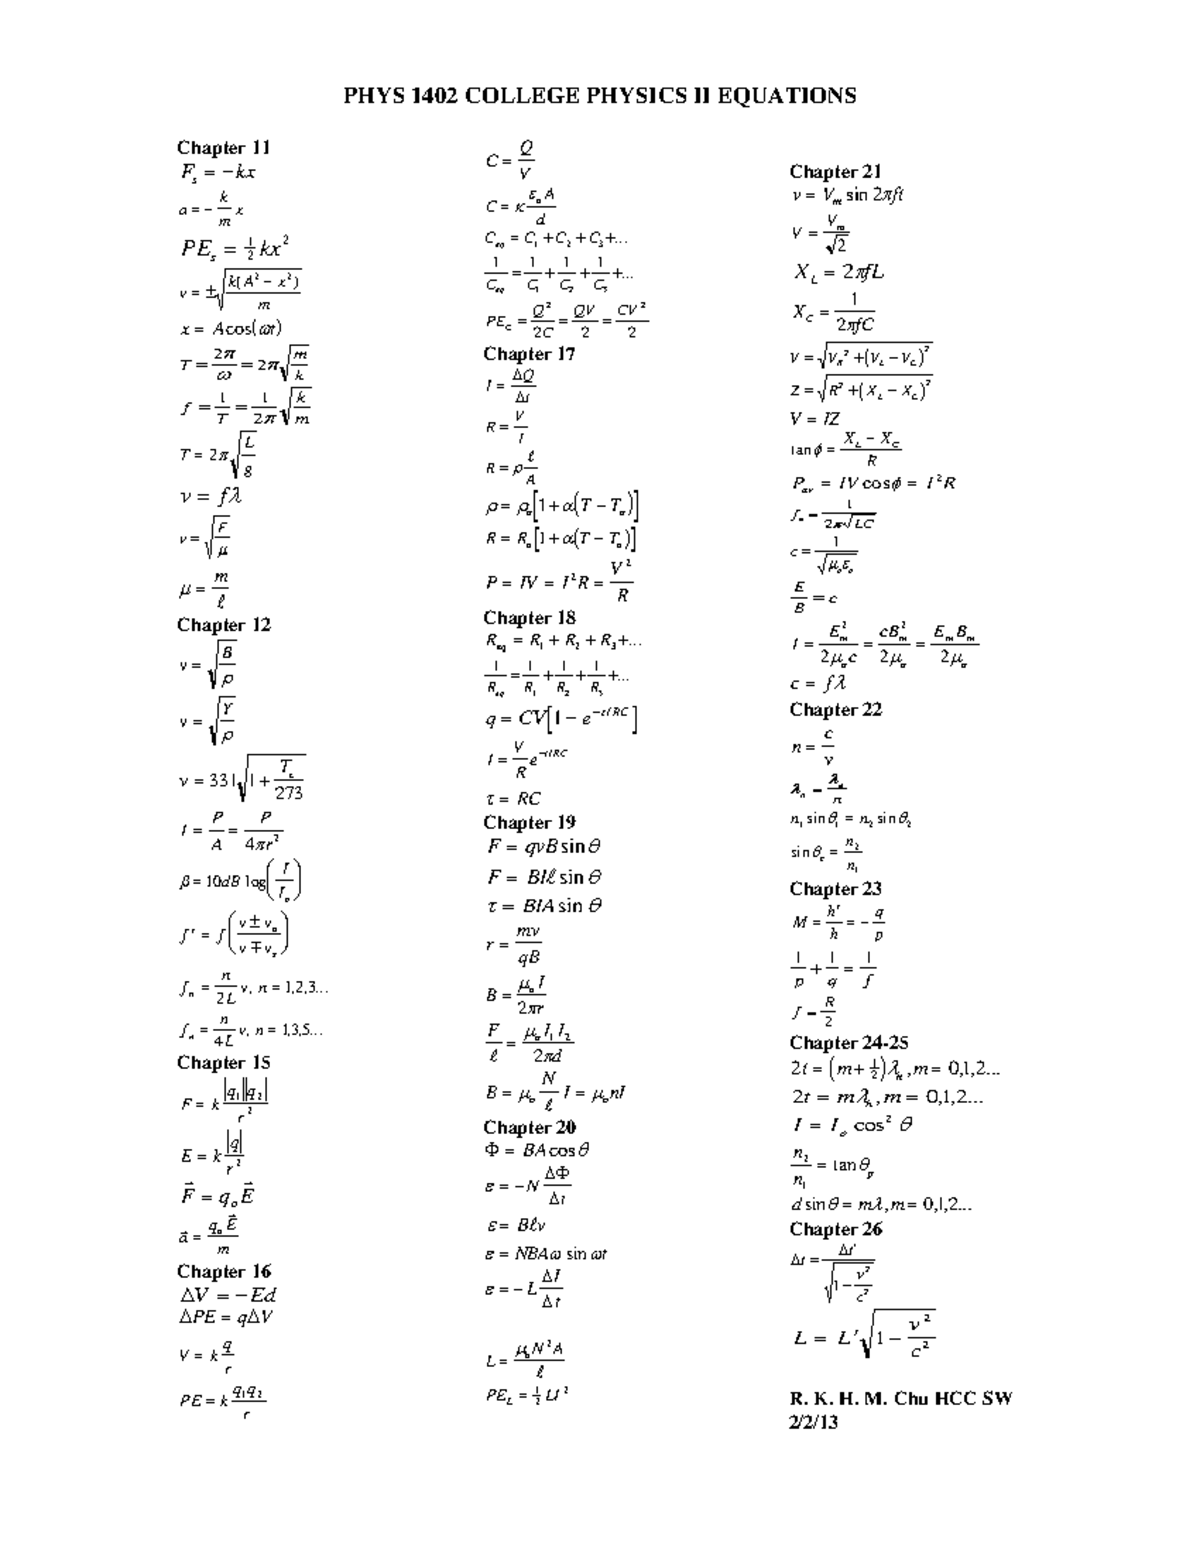 PHYS 1402 COLLEGE PHYSICS II EQUATIONS
Chapter 11
F_s = −kx
a = − k/m x
PE_s = ½ kx²
v = ±√(k(A² − x²)/m)
x = A cos(ωt)
T = 2π/ω = 2π√(m/k)
f = 1/T = 1/2π √(k/m)
T = 2π√(L/g)
v = fλ
v = √(F/μ)
μ = m/ℓ
Chapter 12
v = √(B/ρ)
v = √(Y/ρ)
v = 331√(1 + T_c/273)
I = P/A = P/4πr²
β = 10dB log(I/I_o)
f' = f((v ± v_o)/(v ∓ v_s))
f_n = n/2L v, n = 1,2,3...
f_n = n/4L v, n = 1,3,5...
Chapter 15
F = k |q₁||q₂|/r²
E = k |q|/r²
F⃗ = q_o E⃗
a⃗ = q_o E⃗/m
Chapter 16
ΔV = −Ed
ΔPE = qΔV
V = k q/r
PE = k q₁q₂/r
C = Q/V
C = κ ε_o A/d
C_eq = C₁ + C₂ + C₃+...
1/C_eq = 1/C₁ + 1/C₂ + 1/C₃ +...
PE_C = Q²/2C = QV/2 = CV²/2
Chapter 17
I = ΔQ/Δt
R = V/I
R = ρ ℓ/A
ρ = ρ_o[1 + α(T − T_o)]
R = R_o[1 + α(T − T_o)]
P = IV = I²R = V²/R
Chapter 18
R_eq = R₁ + R₂ + R₃+...
1/R_eq = 1/R₁ + 1/R₂ + 1/R₃ +...
q = CV[1 − e^(−t/RC)]
I = V/R e^(−t/RC)
τ = RC
Chapter 19
F = qvB sin θ
F = BIℓ sin θ
τ = BIA sin θ
r = mv/qB
B = μ_o I/2πr
F/ℓ = μ_o I₁ I₂/2πd
B = μ_o N/ℓ I = μ_o nI
Chapter 20
Φ = BA cos θ
ε = −N ΔΦ/Δt
ε = Bℓv
ε = NBAω sin ωt
ε = −L ΔI/Δt
L = μ_o N²A/ℓ
PE_L = ½ LI²
Chapter 21
v = V_m sin 2πft
V = V_m/√2
X_L = 2πfL
X_C = 1/2πfC
V = √(V_R² + (V_L − V_C)²)
Z = √(R² + (X_L − X_C)²)
V = IZ
tan φ = (X_L − X_C)/R
P_av = IV cos φ = I²R
f_o = 1/2π√LC
c = 1/√(μ_o ε_o)
E/B = c
I = E_m²/2μ_o c = cB_m²/2μ_o = E_m B_m/2μ_o
c = fλ
Chapter 22
n = c/v
λ_n = λ_o/n
n₁ sin θ₁ = n₂ sin θ₂
sin θ_c = n₂/n₁
Chapter 23
M = h'/h = − q/p
1/p + 1/q = 1/f
f = R/2
Chapter 24-25
2t = (m + ½)λ_n, m = 0,1,2...
2t = mλ_n, m = 0,1,2...
I = I_o cos² θ
n₂/n₁ = tan θ_p
d sin θ = mλ, m = 0,1,2...
Chapter 26
Δt = Δt'/√(1 − v²/c²)
L = L'√(1 − v²/c²)
R. K. H. M. Chu HCC SW
2/2/13